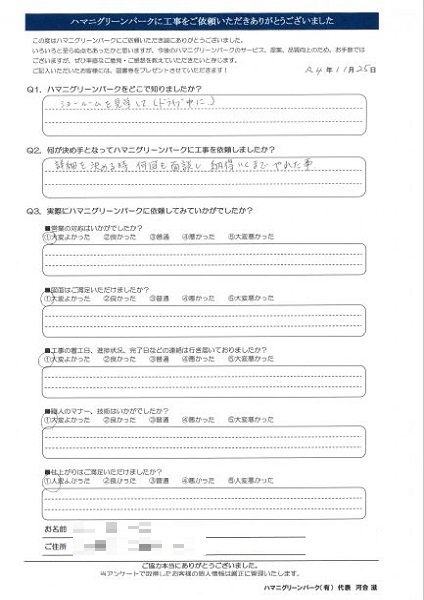 ハマニグリーンパークに工事をご依頼いただきありがとうございました
この度はハマニグリーンパークにご依頼いただき誠にありがとうございました。
いろいろと至らぬ点もあったかと思いますが、今後のハマニグリーンパークのサービス、提案、品質向上のため、お手数では
ございますが、ぜひ率直なご意見・ご感想を教えていただきたいと存じます。
ご記入いただいたお客様には、図書券をプレゼントさせていただきます!
R4年11月25日
Q1、ハマニグリーンパークをどこで知りましたか?
ショールームを見学して(ドライブ中に)
Q2、何が決め手となってハマニグリーンパークに工事を依頼しましたか?
詳細を決める時 何回も面談し 納得いくまで やれた事
Q3、実際にハマニグリーンパークに依頼してみていかがでしたか?
■営業の対応はいかがでしたか?
①大変よかった ②良かった ③普通 ④悪かった ⑤大変悪かった
■図面はご満足いただけましたか?
①大変よかった ②良かった ③普通 ④悪かった ⑤大変悪かった
■工事の着工日、進捗状況、完了日などの連絡は行き届いておりましたか?
①大変よかった ②良かった ③普通 ④悪かった ⑤大変悪かった
■職人のマナー、技術はいかがでしたか?
①大変よかった ②良かった ③普通 ④悪かった ⑤大変悪かった
■仕上がりはご満足いただけましたか?
①大変よかった ②良かった ③普通 ④悪かった ⑤大変悪かった
お名前
ご住所
ご協力本当にありがとうございました。
当アンケートで取得したお客様の個人情報は厳正に管理いたします。
ハマニグリーンパーク(有) 代表 河合 滋